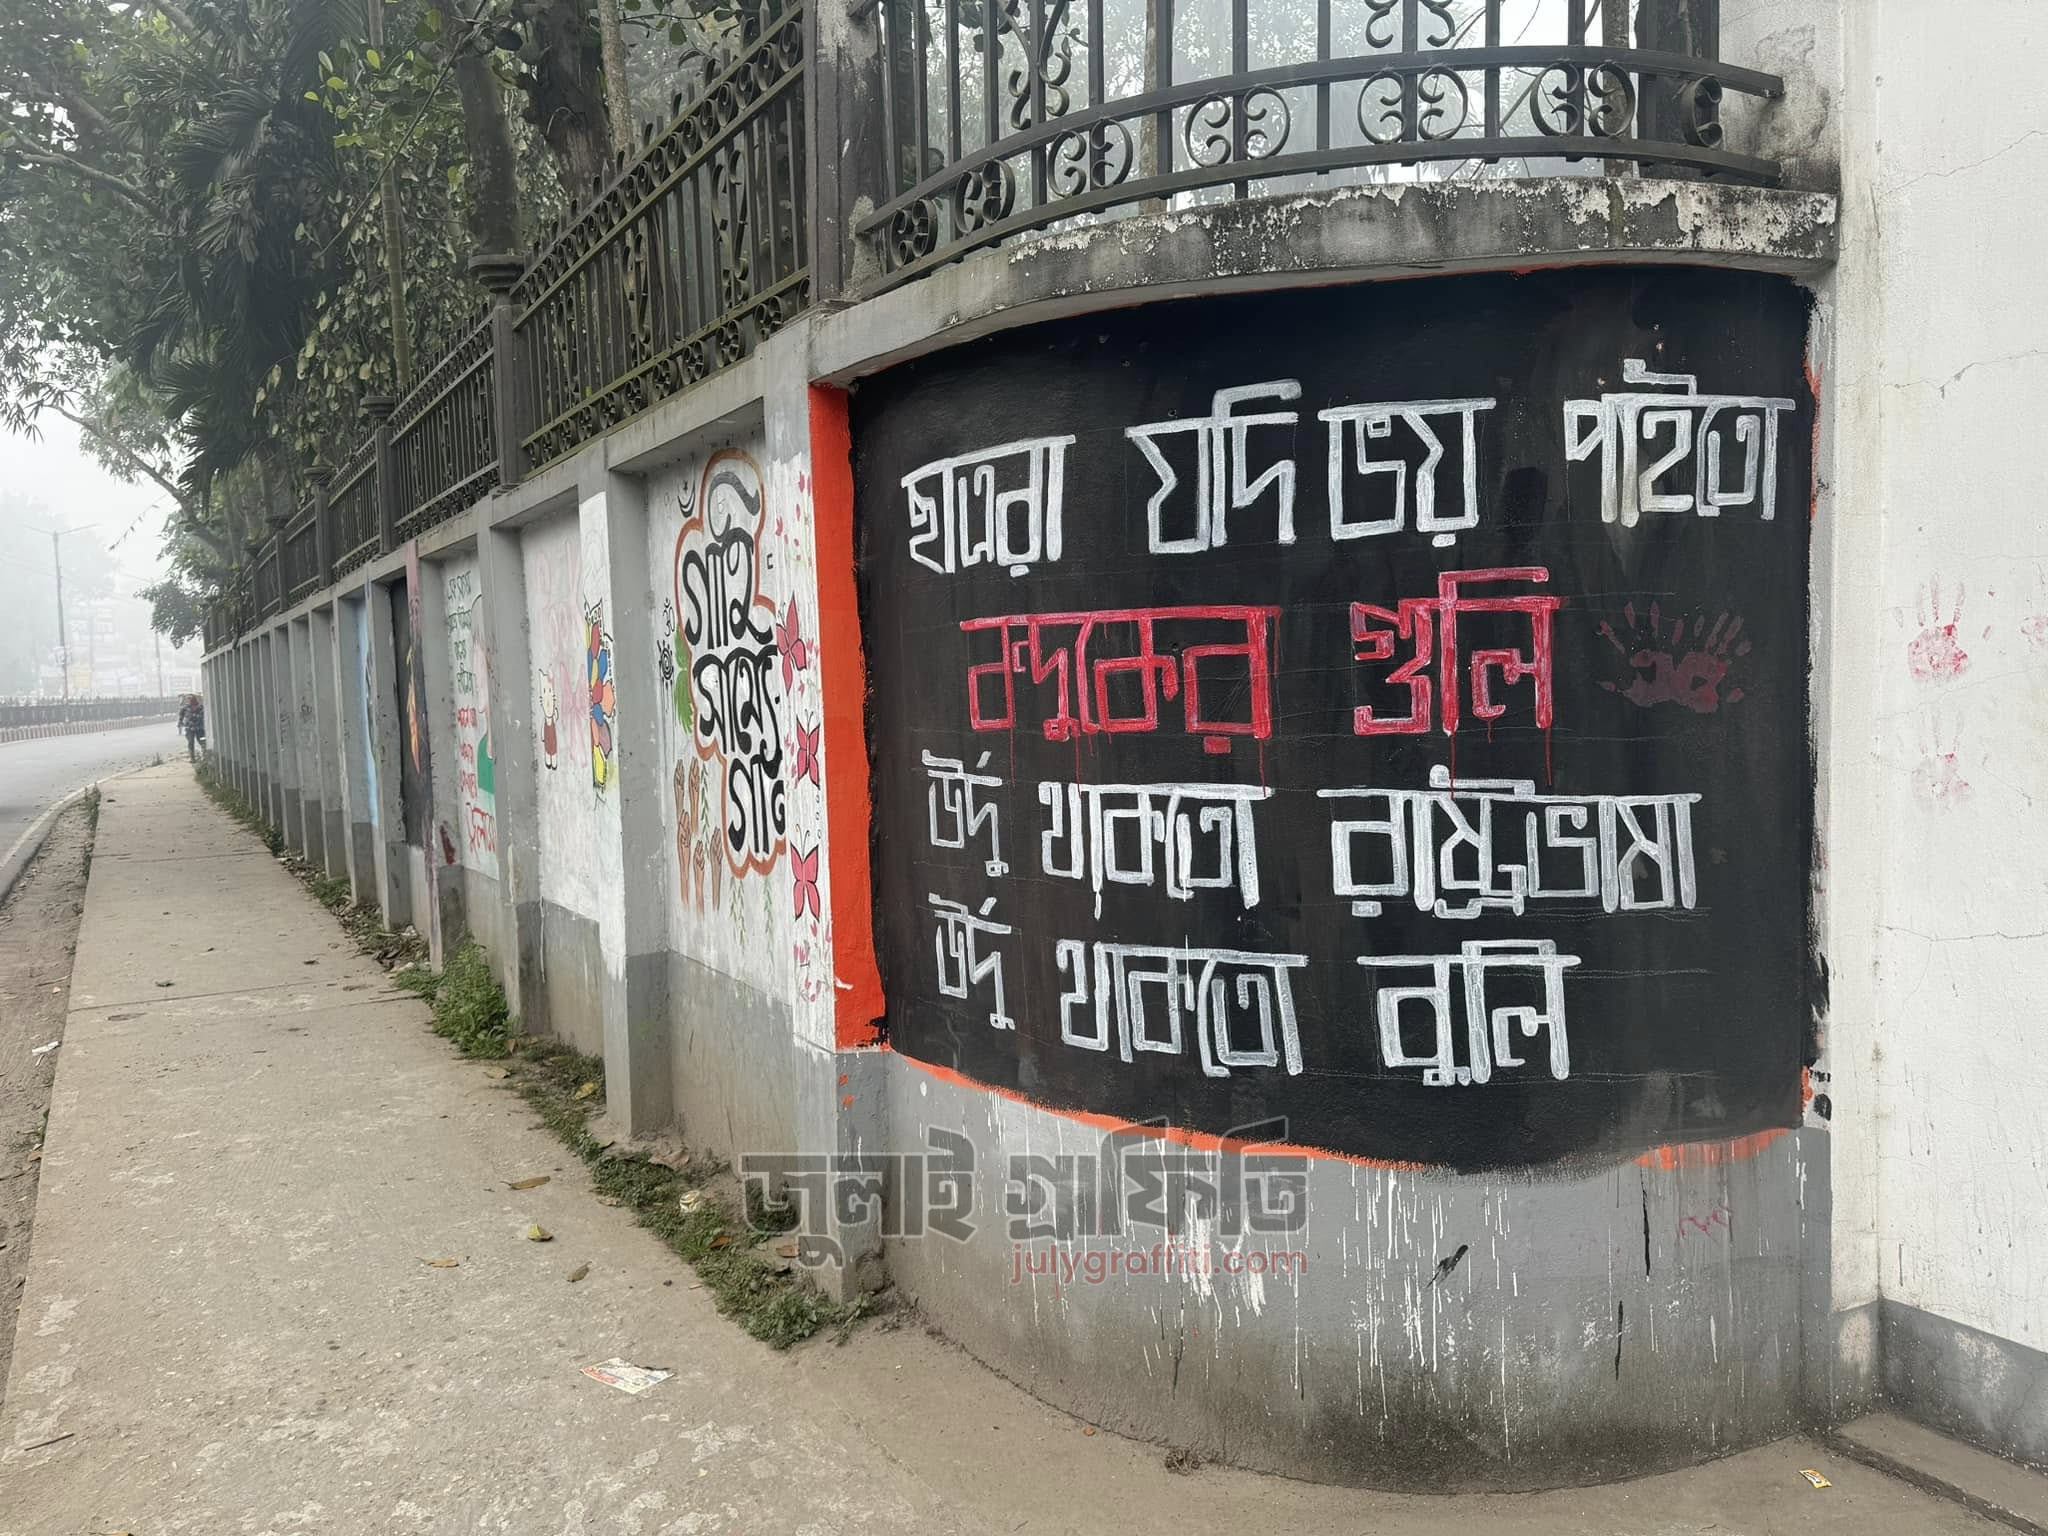 ছাত্ররা যদি ভয় পাইতো
বন্দুকের গুলি
উর্দু থাকতো রাষ্ট্রভাষা
উর্দু থাকতো বুলি
গাহি
সাম্যের
গান
জুলাই গ্রাফিতি
julygraffiti.com